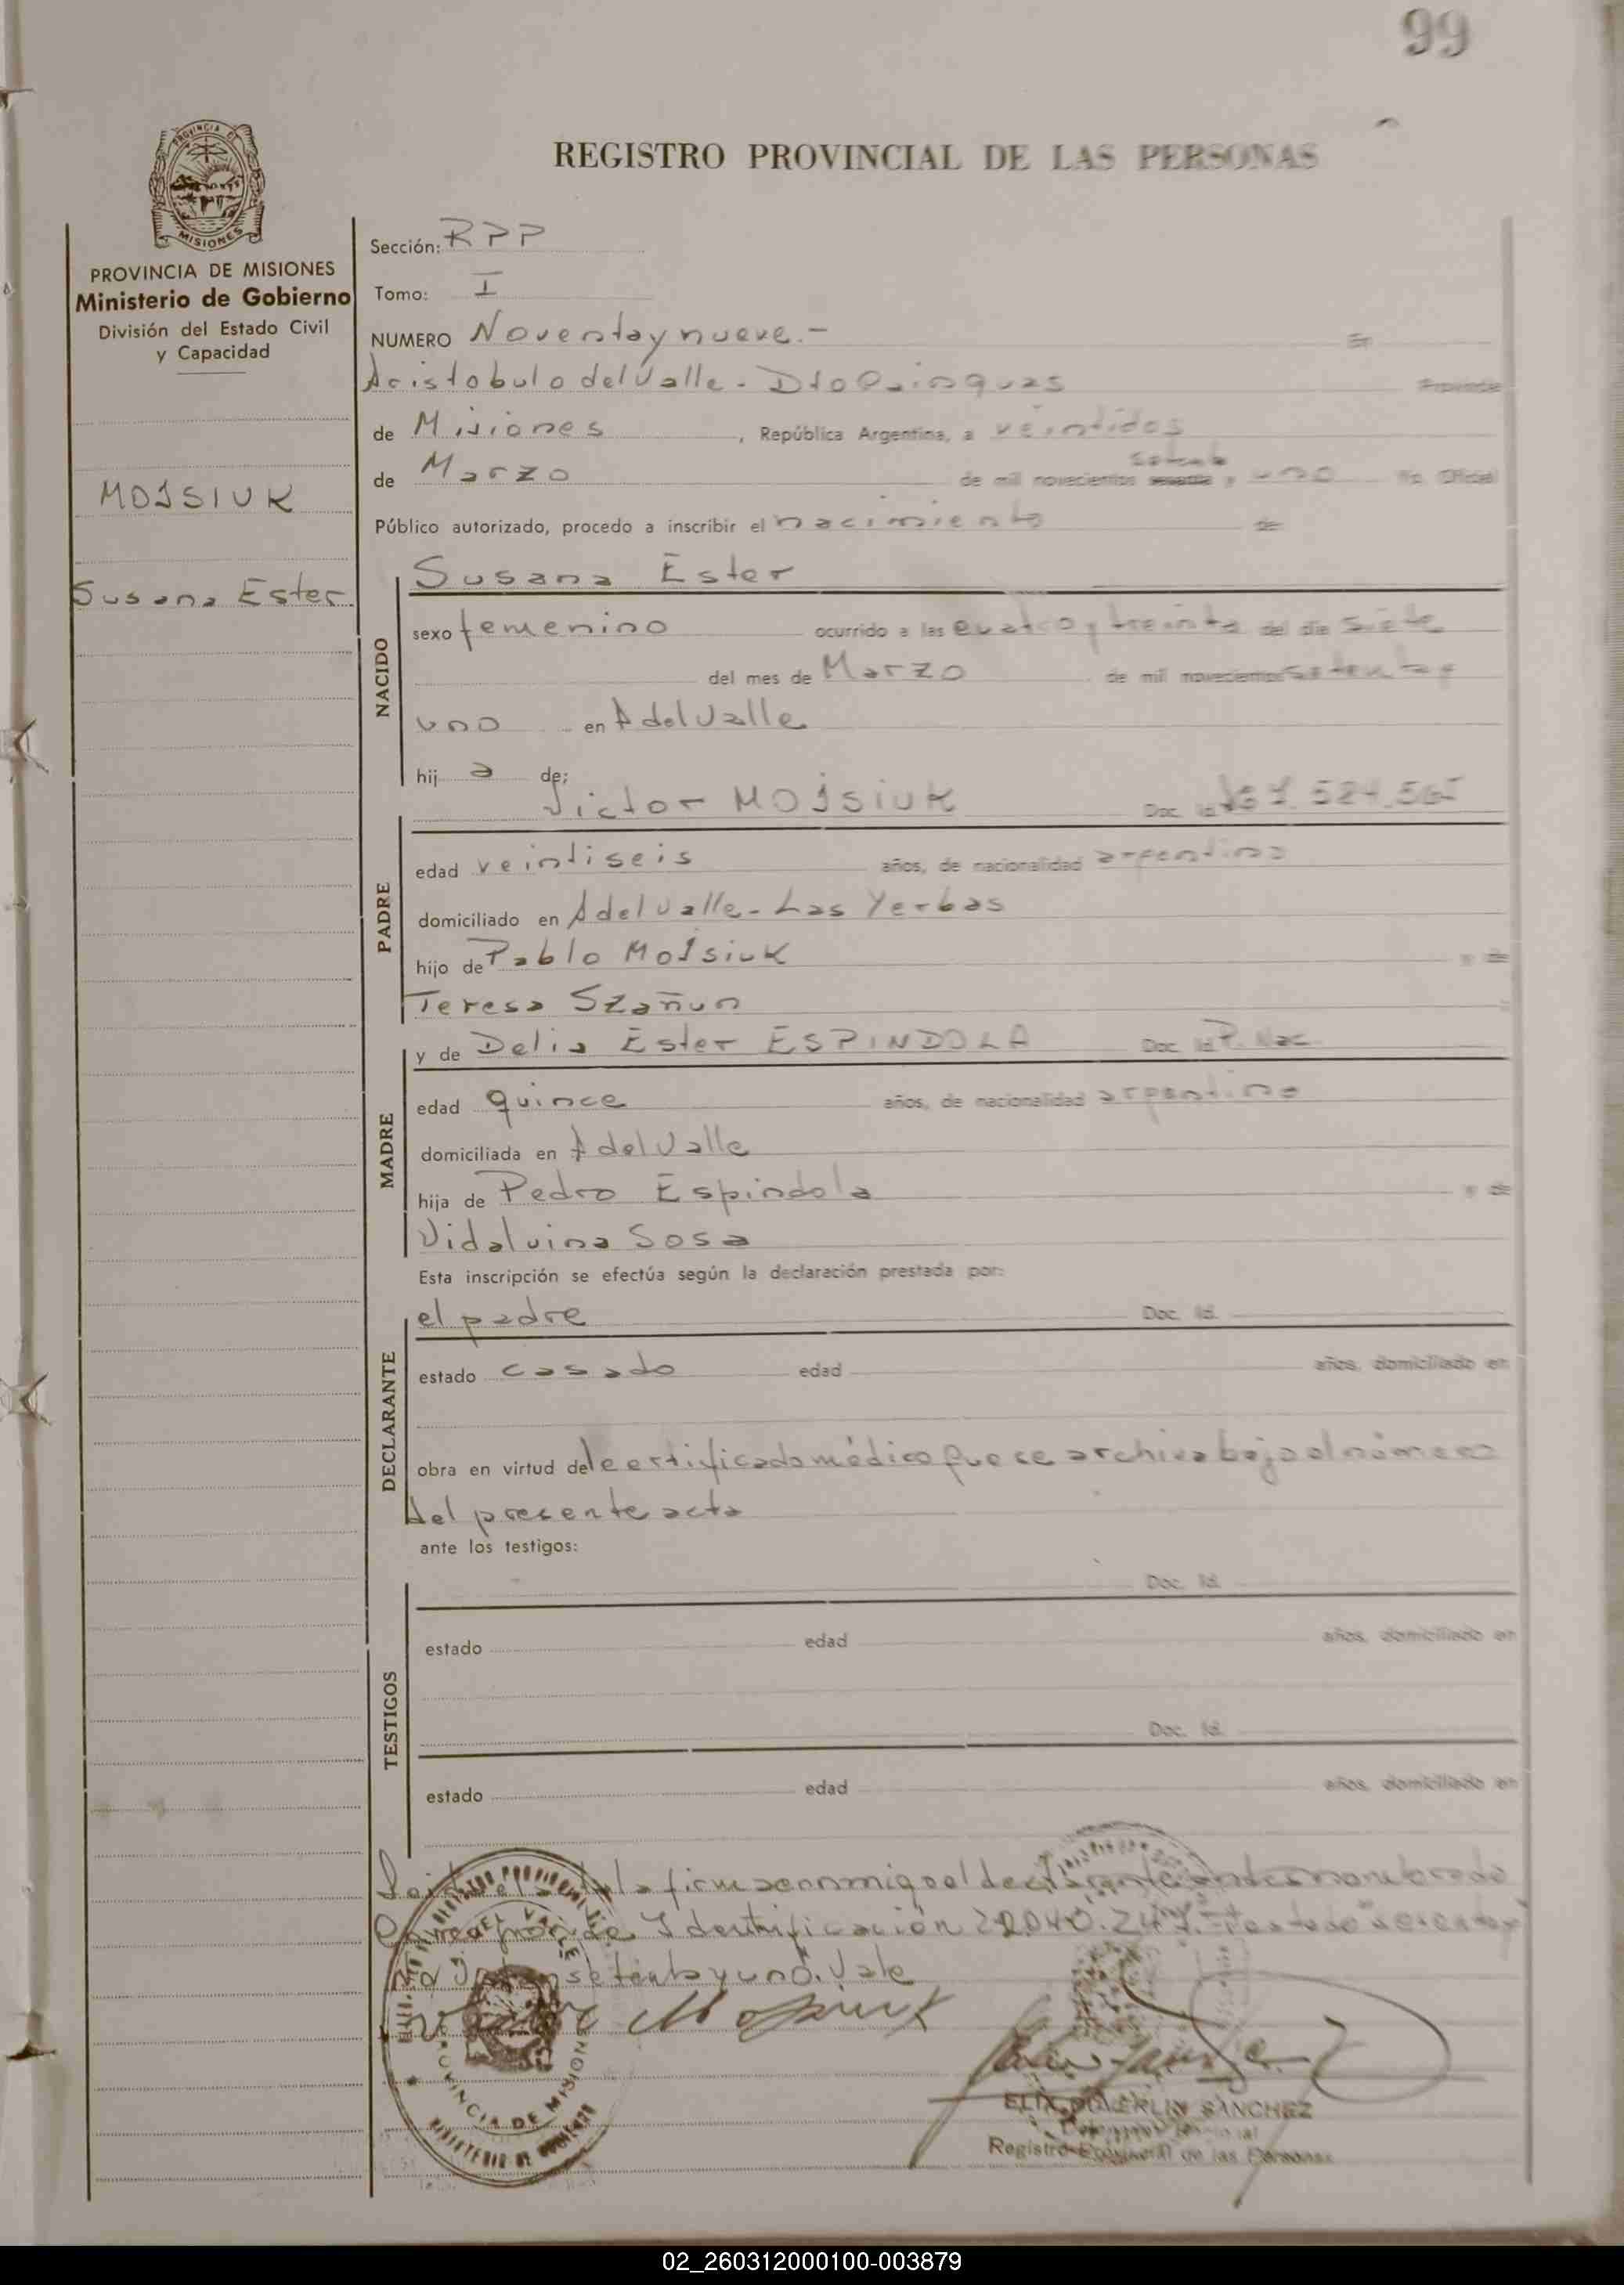 99
REGISTRO PROVINCIAL DE LAS PERSONAS
PROVINCIA DE MISIONES
Ministerio de Gobierno
División del Estado Civil
y Capacidad
MOJSIUK
Susana Ester
Sección: RPP
Tomo: I
NUMERO Noventa y nueve.- En
Aristobulo del Valle - Dto Cainguas Provincia
de Misiones, República Argentina, a veintidos
de Marzo de mil novecientos setenta y uno Yo, Oficial
Público autorizado, procedo a inscribir el nacimiento de
NACIDO
Susana Ester
sexo femenino ocurrido a las cuatro y treinta del dia siete
del mes de Marzo de mil novecientos setenta y
uno en A del Valle
hij a de:
PADRE
Victor MOJSIUK Doc. Id.
edad veintiseis años, de nacionalidad argentino
domiciliado en A del Valle - Las Yerbas
hijo de Pablo Mojsiuk y de
Teresa Szañun
MADRE
y de Delia Ester ESPINDOLA Doc. Id. P. Nac
edad quince años, de nacionalidad argentina
domiciliada en A del Valle
hija de Pedro Espindola y de
Vidalvina Sosa
Esta inscripción se efectúa según la declaración prestada por:
DECLARANTE
el padre Doc. Id.
estado casado edad años, domiciliado en
obra en virtud del certificado médico que se archiva bajo el número
del presente acta
ante los testigos:
TESTIGOS
Doc. Id.
estado edad años, domiciliado en
Doc. Id.
estado edad años, domiciliado en
la firma conmigo el declarante antes nombrado
de Identificación
setenta y uno. Vale
PROVINCIA DE MISIONES
MINISTERIO DE GOBIERNO
SANCHEZ
Registro Provincial de las Personas
02_260312000100-003879